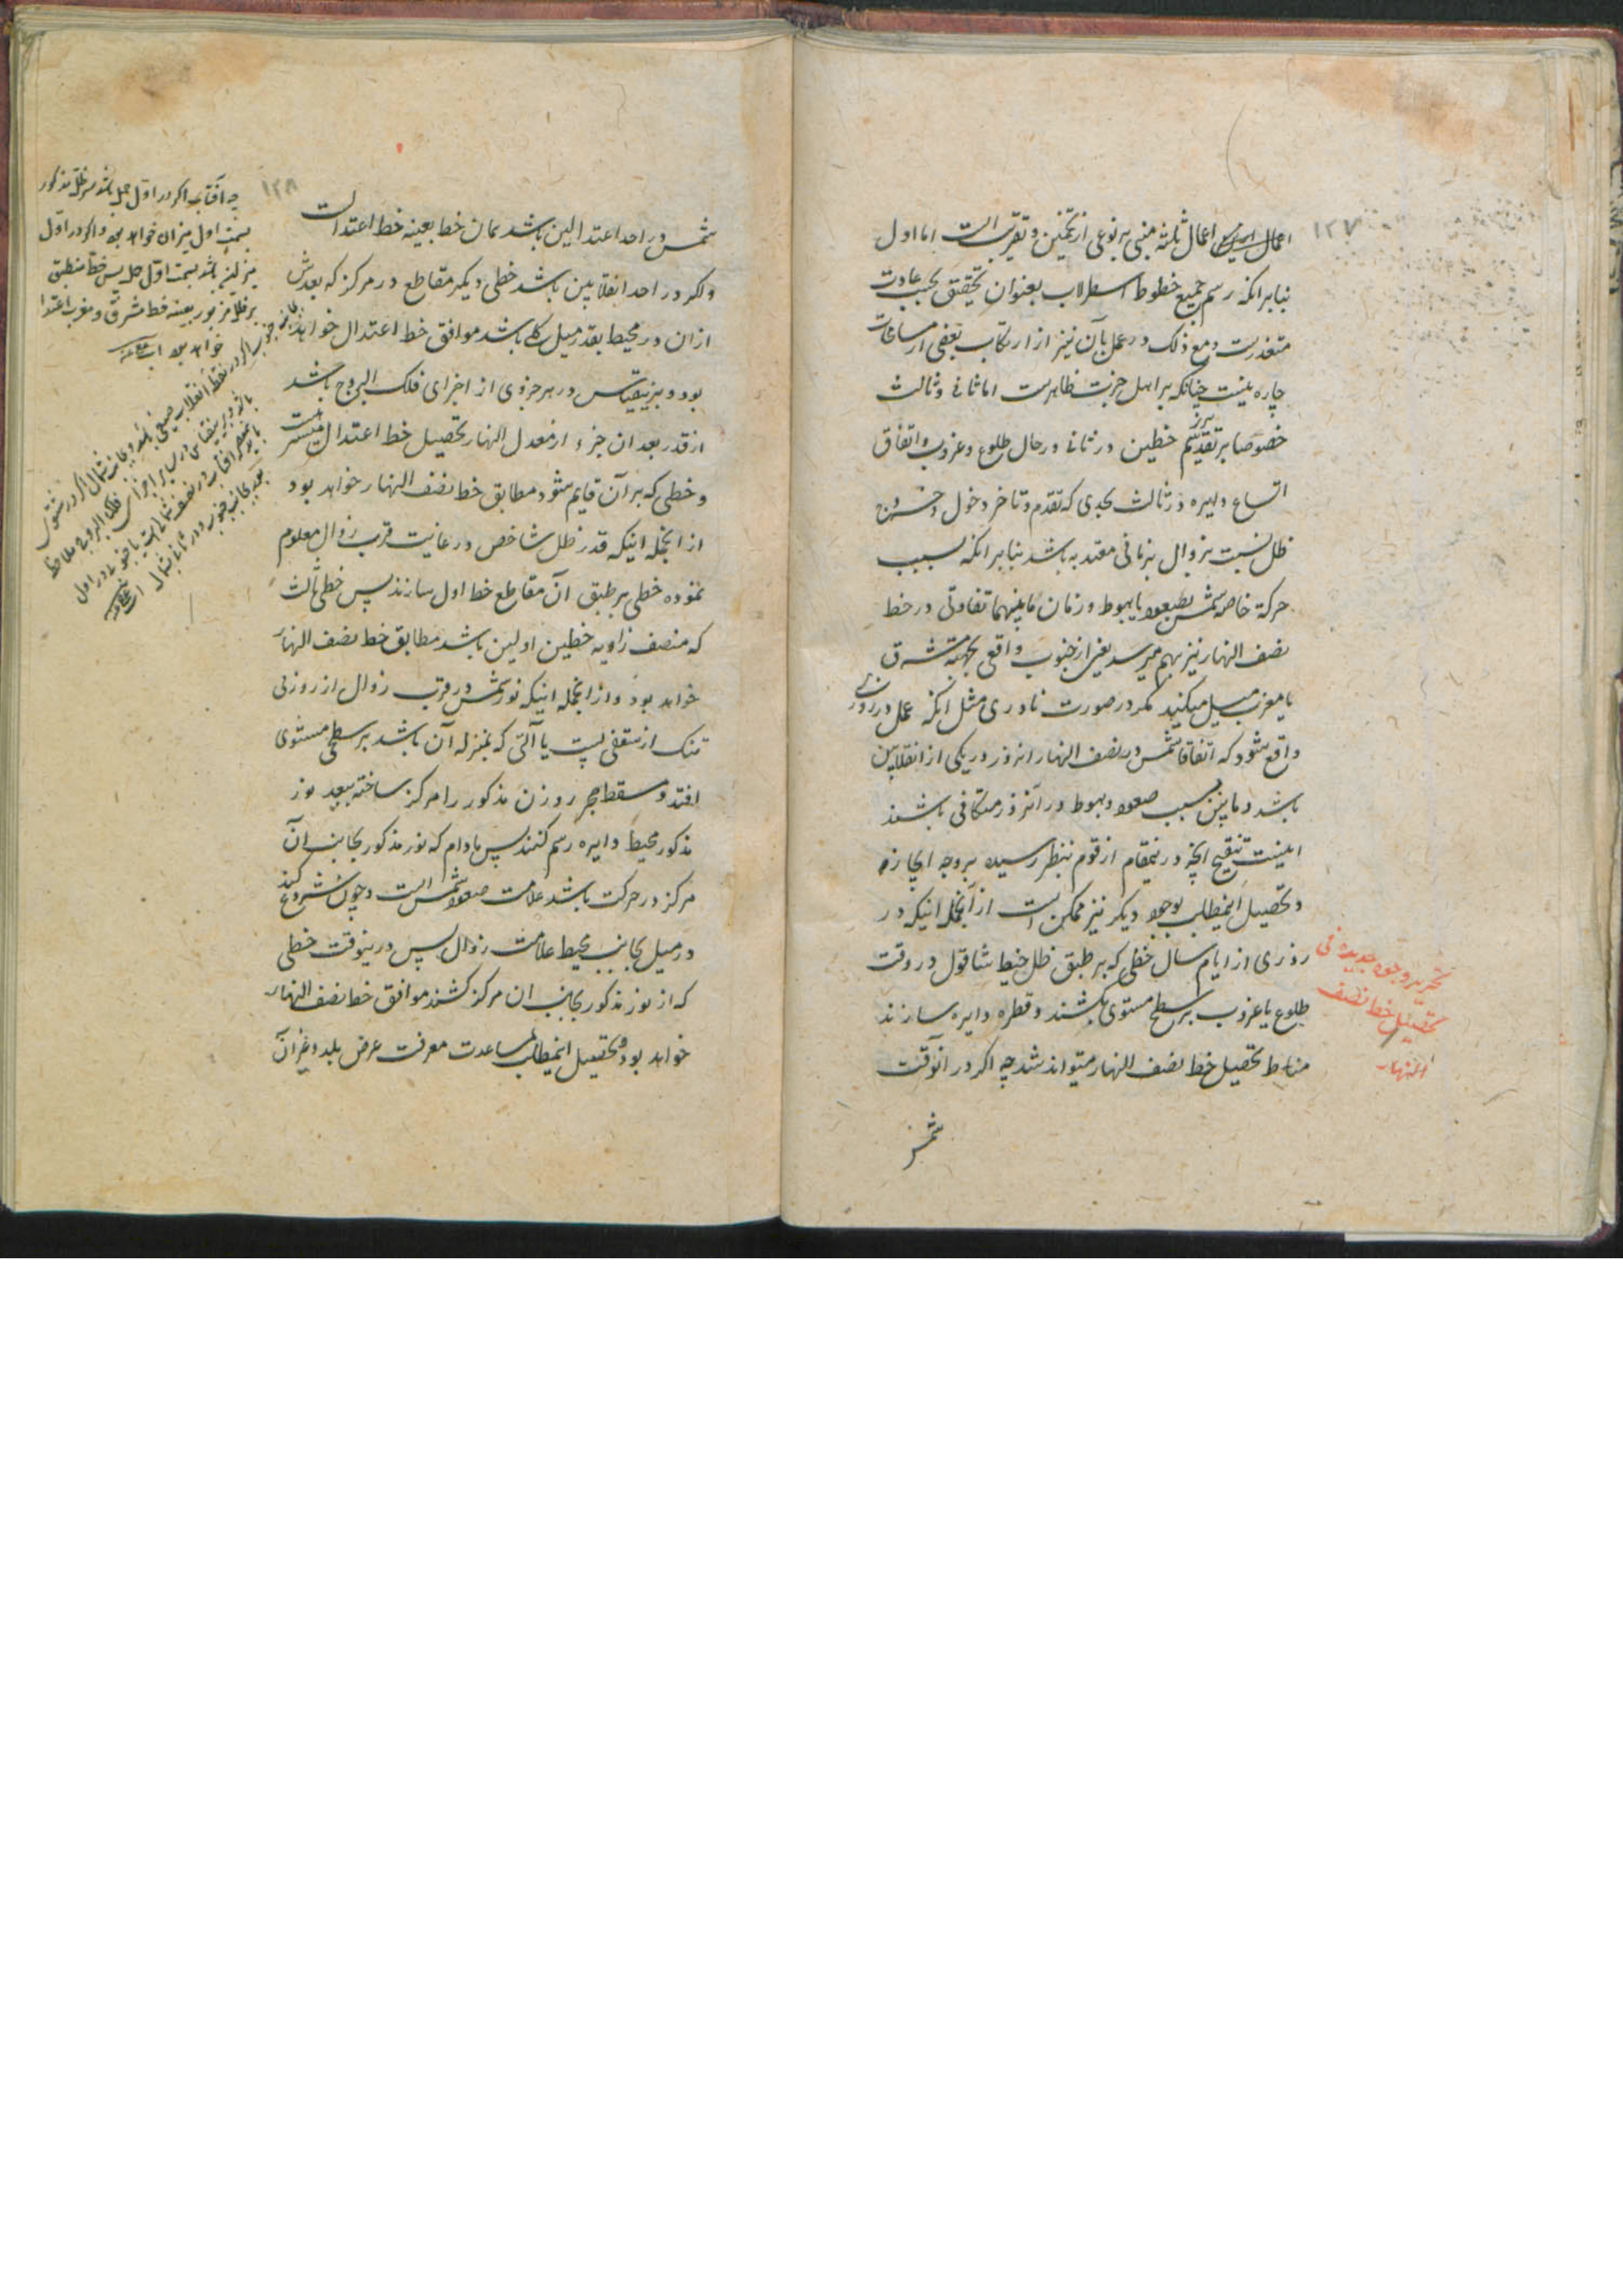 ۱۲۷
اعمال ثلثه مبنی بر نوعی از تخمین و تقریب است اما اول
بنابر انکه رسم جمیع خطوط اسطرلاب بعنوان تحقیق بحسب عادت
متعذرست و مع ذلک در عمل بآن نیز از ارتکاب بعضی از مسامحات
چاره نیست چنانکه بر اهل خبرت ظاهرست اما ثانی و ثالث
خصوصا بر تقدیر خطین در ثانی در حال طلوع و غروب و اتفاق
اتساع دایره در ثالث بحدی که تقدم و تاخر دخول و خروج
ظل نسبت بزوال بزمانی معتد به باشد بنابر انکه بسبب
حرکة خاصه شمس بصعود یا هبوط در زمان مابینهما تفاوتی در خط
نصف النهار نیز بهم میرسد یعنی از جنوب واقع بجهة مشرق
یا مغرب میل میکند مگر در صورت نادری مثل انکه عمل در روزی
واقع شود که اتفاقا شمس در نصف النهار انروز در یکی از انقلابین
باشد و مابین بسبب صعود و هبوط در آنروز متکافی باشند
اینست تنقیح انچه در نیمقام از قوم بنظر رسیده بر وجه ایجاز
و تحصیل اینمطلب بوجوه دیکر نیز ممکن است از آنجمله اینکه در
روزی از ایام سال خطی که بر طبق ظل خیط شاقول در وقت
طلوع یا غروب بر سطح مستوی بکشند و قطره دایره سازند
مناط تحصیل خط نصف النهار میتواند شد چه اکر در آنوقت
شمس
تحریر وجوه جدیده فی
تحصیل خط نصف
النهار
۱۲۸
شمس در احد اعتدالین باشد همان خط بعینه خط اعتدالست
و اکر در احد انقلابین باشد خطی دیکر مقاطع در مرکز که بعدش
ازان در محیط بقدر میل کلی باشد موافق خط اعتدال خواهد
بود و برینقیاس در هر جزوی از اجزای فلک البروج باشد
از قدر بعد ان جزء از معدل النهار تحصیل خط اعتدال میسرست
و خطی که بر آن قایم شود مطابق خط نصف النهار خواهد بود
از انجمله اینکه قدر ظل شاخص در غایت قرب زوال معلوم
نموده خطی بر طبق آن مقاطع خط اول سازند پس خطی ثالث
که منصف زاویه خطین اولین باشد مطابق خط نصف النهار
خواهد بود و از انجمله اینکه نور شمس در قرب زوال از روزنی
تنک از سقفی پست یا آلتی که بمنزله آن باشد بر سطح مستوی
افتد و مسقط حجر روزن مذکور را مرکز ساخته ببعد نور
مذکور محیط دایره رسم کنند پس مادام که نور مذکور بجانب آن
مرکز در حرکت باشد علامت صعود شمس است و چون شروع کند
در میل بجانب محیط علامت زوال پس درینوقت خطی
که از نور مذکور بجانب ان مرکز کشند موافق خط نصف النهار
خواهد بود و تحصیل اینمطلب بمساعدت معرفت عرض بلد و غیر آن
چه آفتاب اکر در اول حمل باشد سر ظل مذکور
بسمت اول میزان خواهد بود و اکر در اول
میزان باشد بسمت اول حمل پس خط منطبق
بر ظل مزبور بعینه خط مشرق و مغرب اعتدال
خواهد بود
بجانب جنوب اکر در نقطه انقلاب صیفی باشد و بجانب شمال اکر در شتوی
باشد و برینقیاس در سایر اجزای فلک البروج ملاحظه
آفتاب در نصف شمالی است یا جنوبی در اول
بعد بجانب جنوب و در ثانی بشمال